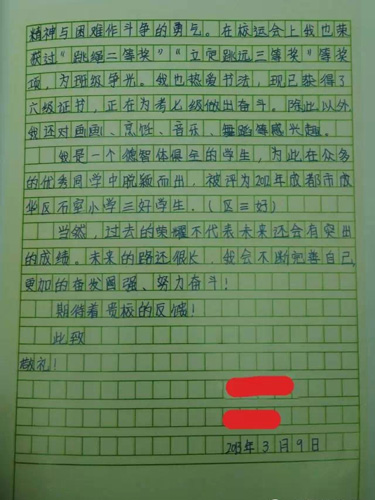 精神与困难作斗争的勇气。在校运会上我也荣
获过“跳绳二等奖”“立定跳远三等奖”等奖
项，为班级争光。我也热爱书法，现已获得了
六级证书，正在为考七级做出奋斗。除此以外
我还对画画、烹饪、音乐、舞蹈等感兴趣。
我是一个德智体俱全的学生，为此在众多
的优秀同学中脱颖而出，被评为2012年成都市成
华区石室小学三好学生。（区三好）
当然，过去的荣耀不代表未来还会有突出
的成绩。未来的路还很长，我会不断完善自己，
更加的奋发图强、努力奋斗！
期待着贵校的反馈！
此致
敬礼！
2013年3月9日